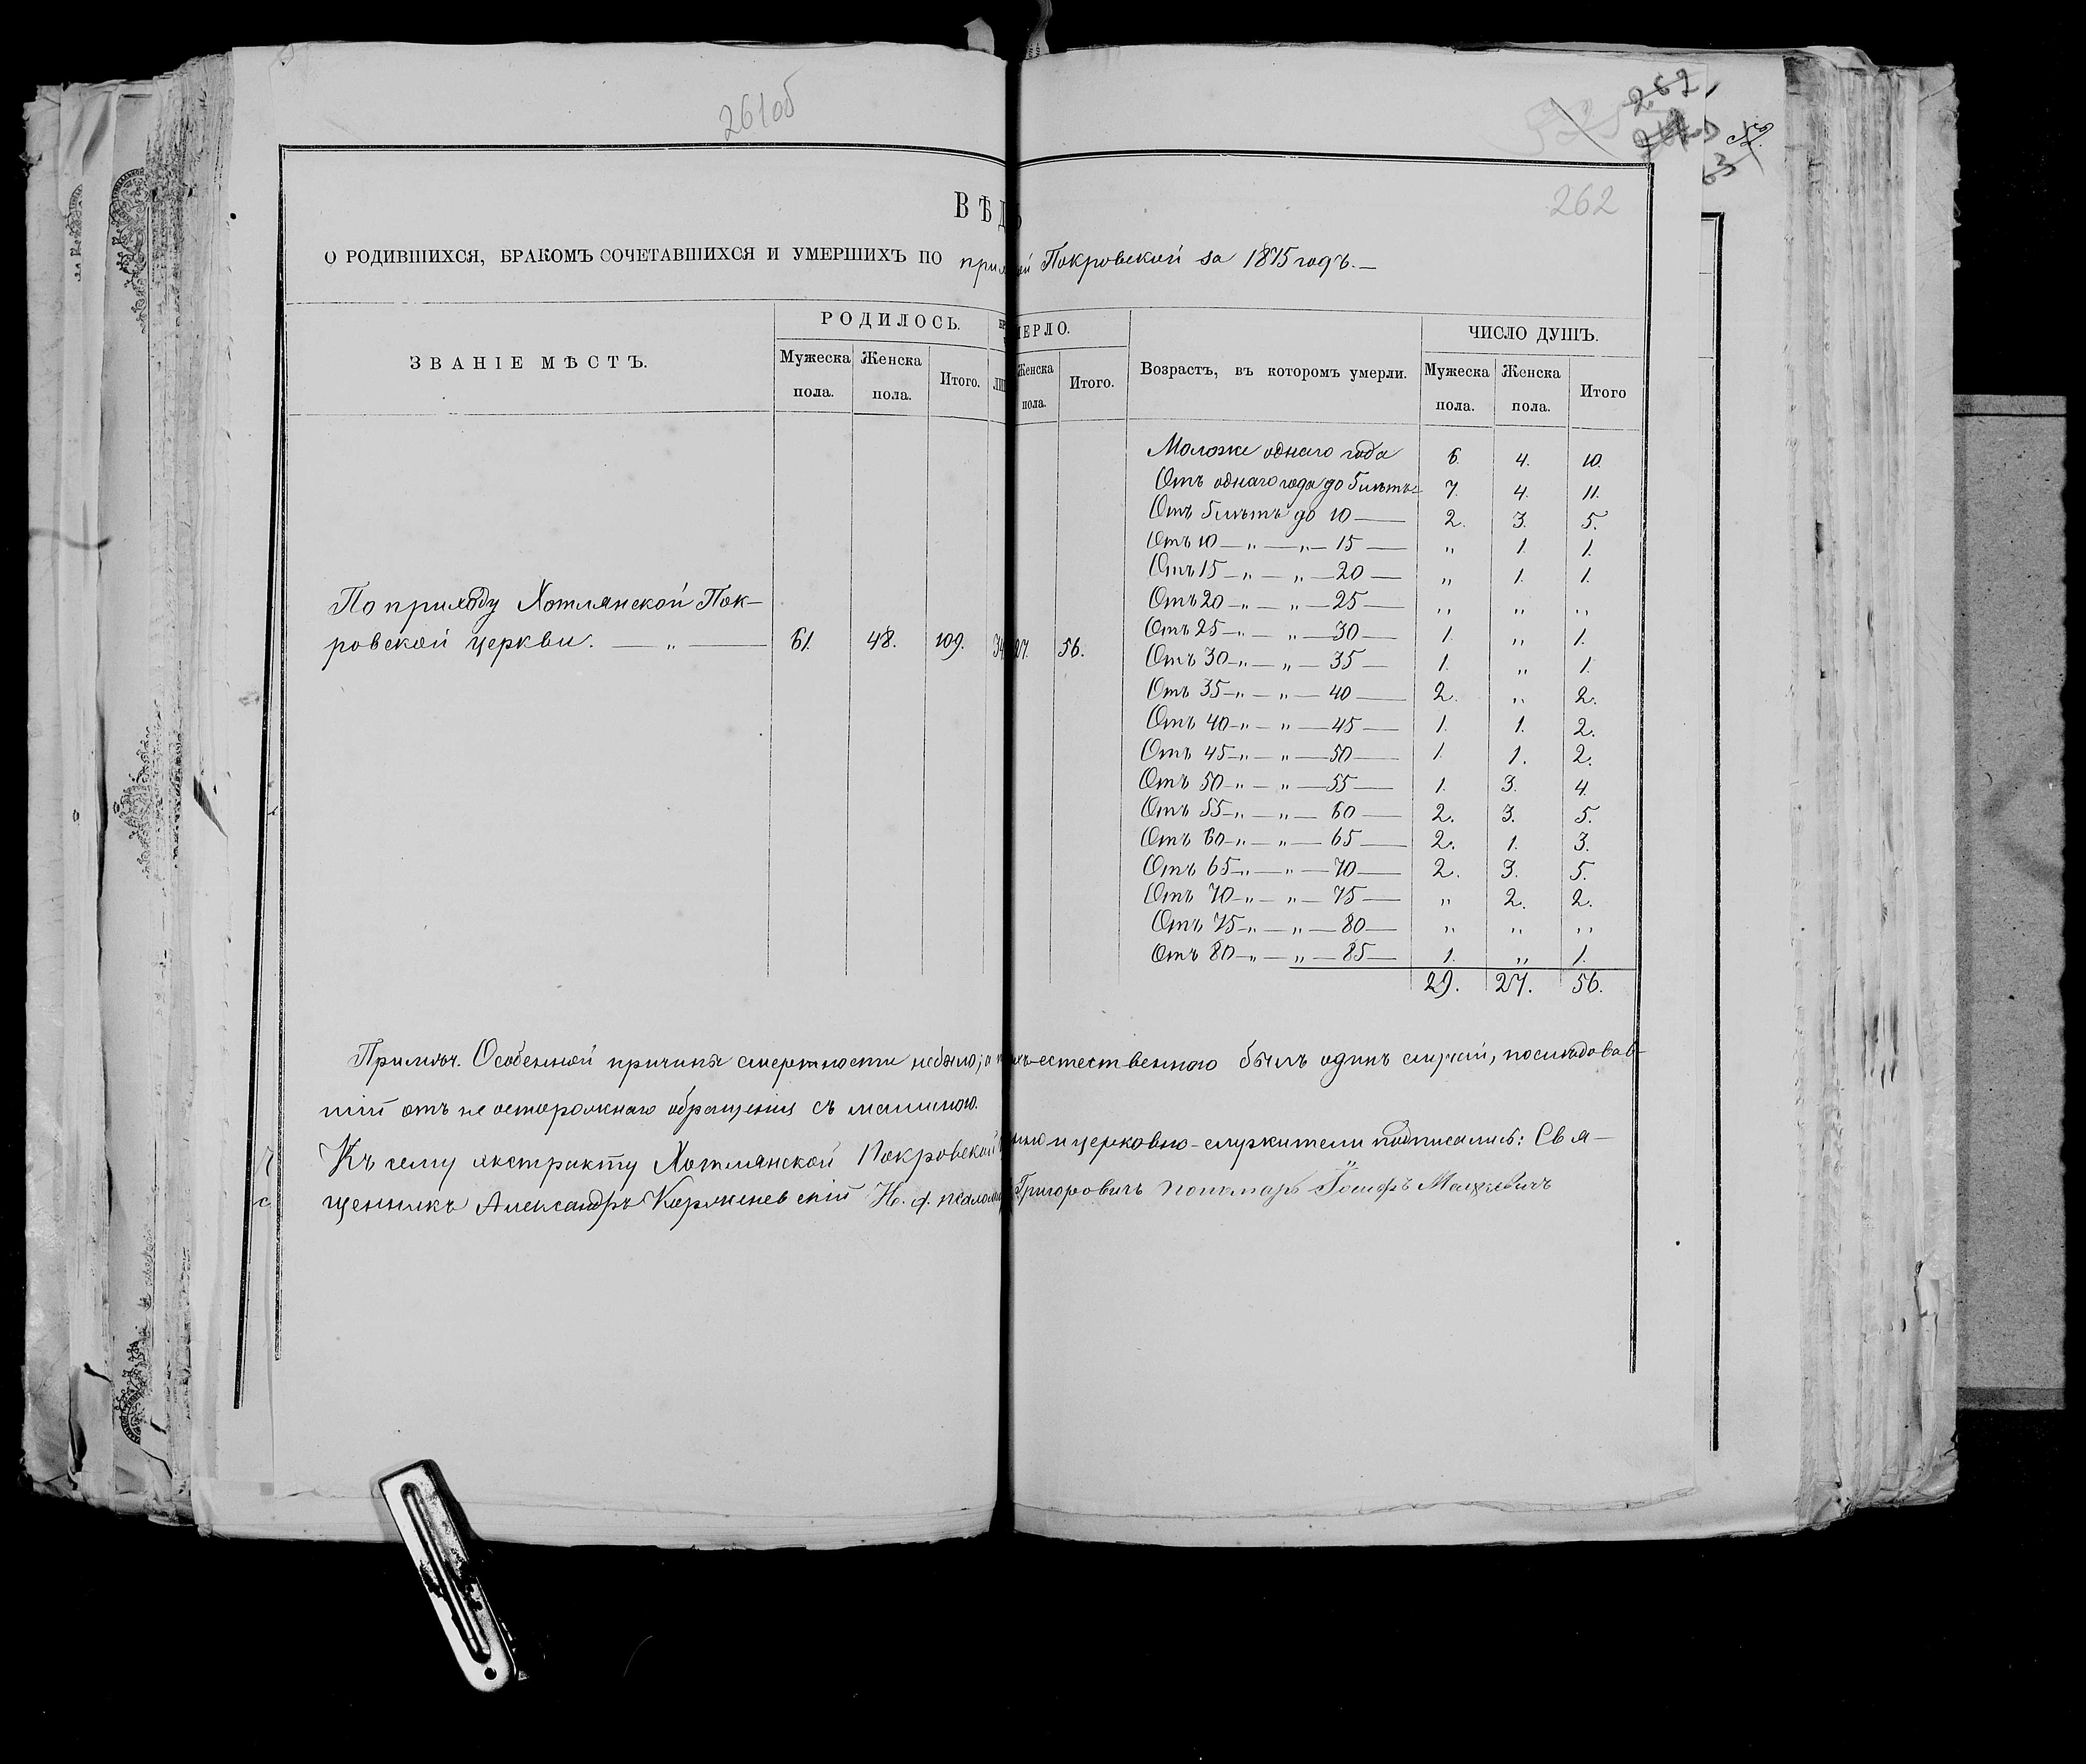 261об
262
262
ВѢД
О РОДИВШИХСЯ, БРАКОМЪ СОЧЕТАВШИХСЯ И УМЕРШИХЪ ПО
й Покровской за 1875 годъ. —
ЗВАНІЕ МѢСТЪ.
РОДИЛОСЬ.
Мужеска пола.
Женска пола.
Итого.
МЕРЛО.
Женска пола.
Итого.
Возрастъ, въ которомъ умерли.
ЧИСЛО ДУШЪ.
Мужеска пола.
Женска пола.
Итого
По приходу Хотлянской Пок-
ровской церкви. — „ — 61. 48. 109. 34 27. 56.
Моложе однаго года 6. 4. 10.
Отъ однаго года до 5 лѣтъ 7. 4. 11.
Отъ 5 лѣтъ до 10 — 2. 3. 5.
Отъ 10 — „ — „ — 15 — „ 1. 1.
Отъ 15 — „ — „ — 20 — „ 1. 1.
Отъ 20 — „ — „ — 25 — „ „ „
Отъ 25 — „ — „ — 30 — 1. „ 1.
Отъ 30 — „ — „ — 35 — 1. „ 1.
Отъ 35 — „ — „ — 40 — 2. „ 2.
Отъ 40 — „ — „ — 45 — 1. 1. 2.
Отъ 45 — „ — „ — 50 — 1. 1. 2.
Отъ 50 — „ — „ — 55 — 1. 3. 4.
Отъ 55 — „ — „ — 60 — 2. 3. 5.
Отъ 60 — „ — „ — 65 — 2. 1. 3.
Отъ 65 — „ — „ — 70 — 2. 3. 5.
Отъ 70 — „ — „ — 75 — „ 2. 2.
Отъ 75 — „ — „ — 80 — „ „ „
Отъ 80 — „ — „ — 85 — 1. „ 1.
29. 27. 56.
Примѣч. Особенной причины смертности небыло; а естественного былъ одинъ случай, послѣдовав-
шій отъ не осторожнаго обращенія съ машиною.
Къ сему экстракту Хотлянской Покровской и церковно-служители подписались: Свя-
щенникъ Александръ Н. д. псалом Григоровичъ пономарь Іосифъ Мацкевичъ